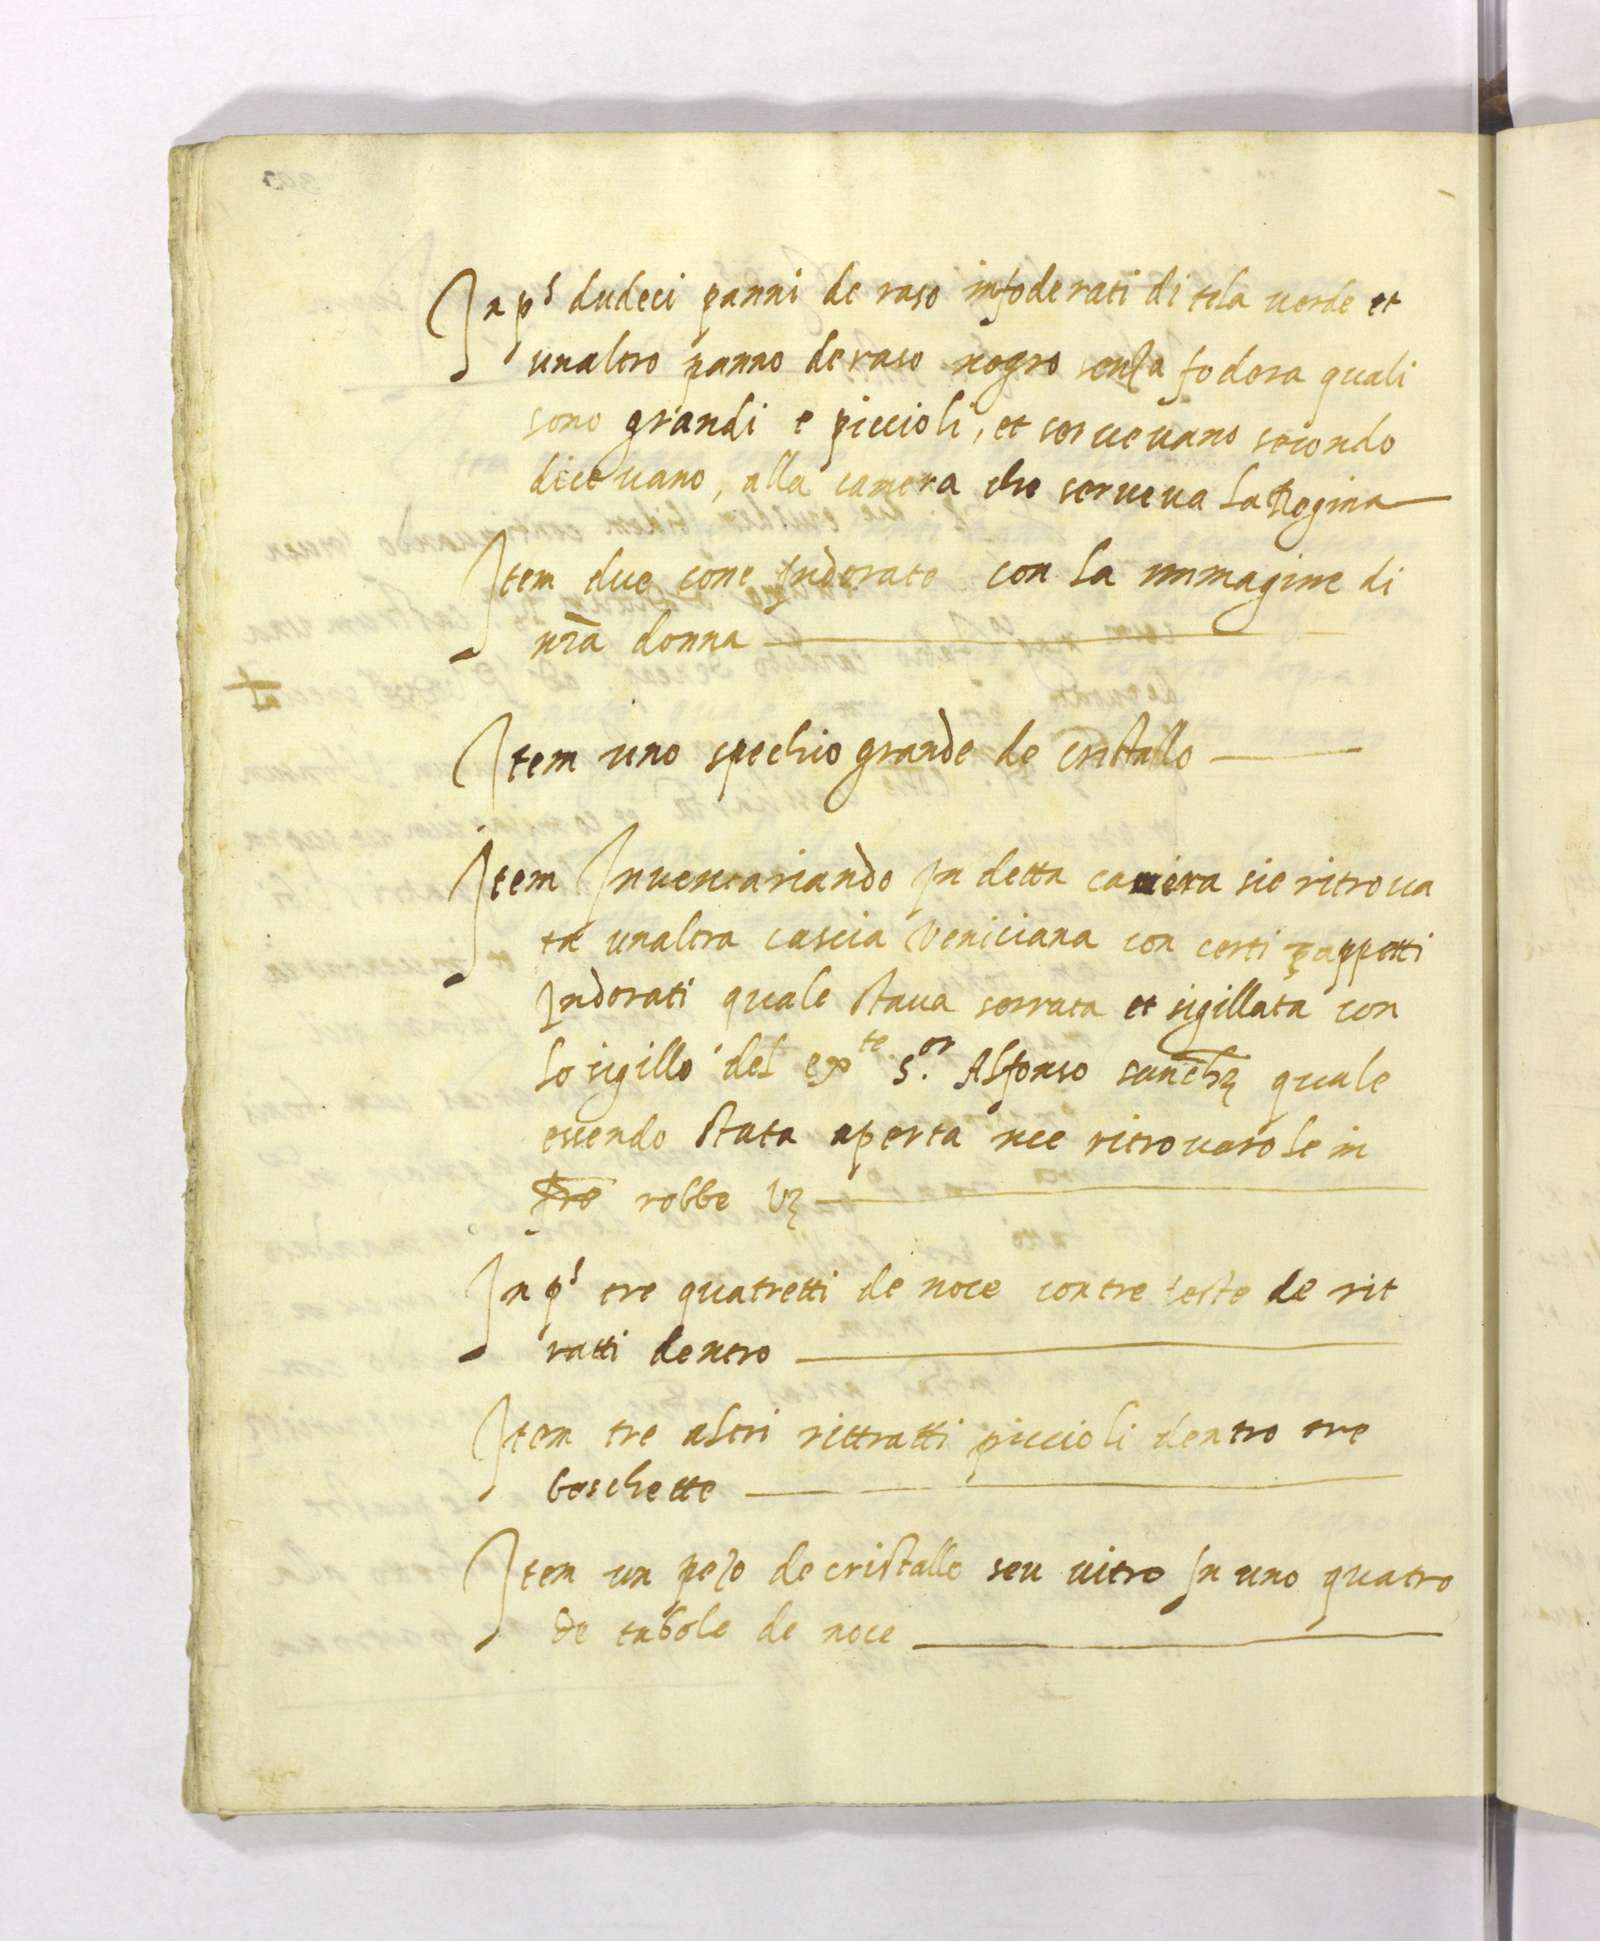 In ps dudeci panni de raso infoderati di tela verde et
unaltro panno de raso negro senza fodera quali
sono grandi e piccioli, et servevano secondo
dicevano, alla camera che serveva la Regina
Item due cone Indorate con la immagine di
nr̄a donna
Item uno spechio grande de cristallo
Item Inventariando In detta camera sie ritrova
ta unaltra cascia veniciana con certi zappetti
Indorati quale stava serrata et sigillata con
lo sigillo del exte s.or Alfonso sanchz quale
essendo stata aperta nce ritrovaro le in
fr̄e robbe vz
In ps tre quatretti de noce con tre teste de rit
ratti dentro
Item tre altri rittratti piccioli dentro tre
boschette
Item un pezo de cristallo seu vitro In uno quatro
de tabole de noce